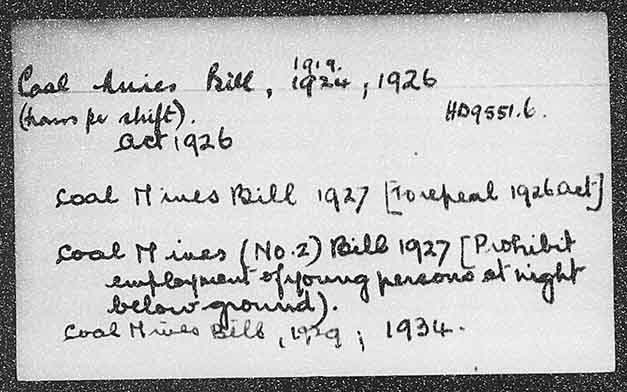 Coal Mines Bill, 1919. 1924, 1926
(hours per shift). HD9551.6.
Act 1926
Coal Mines Bill 1927 [To repeal 1926 Act]
Coal Mines (No.2) Bill 1927 [Prohibit
employment of young persons at night
below ground).
Coal Mines Bill, 1929; 1934.